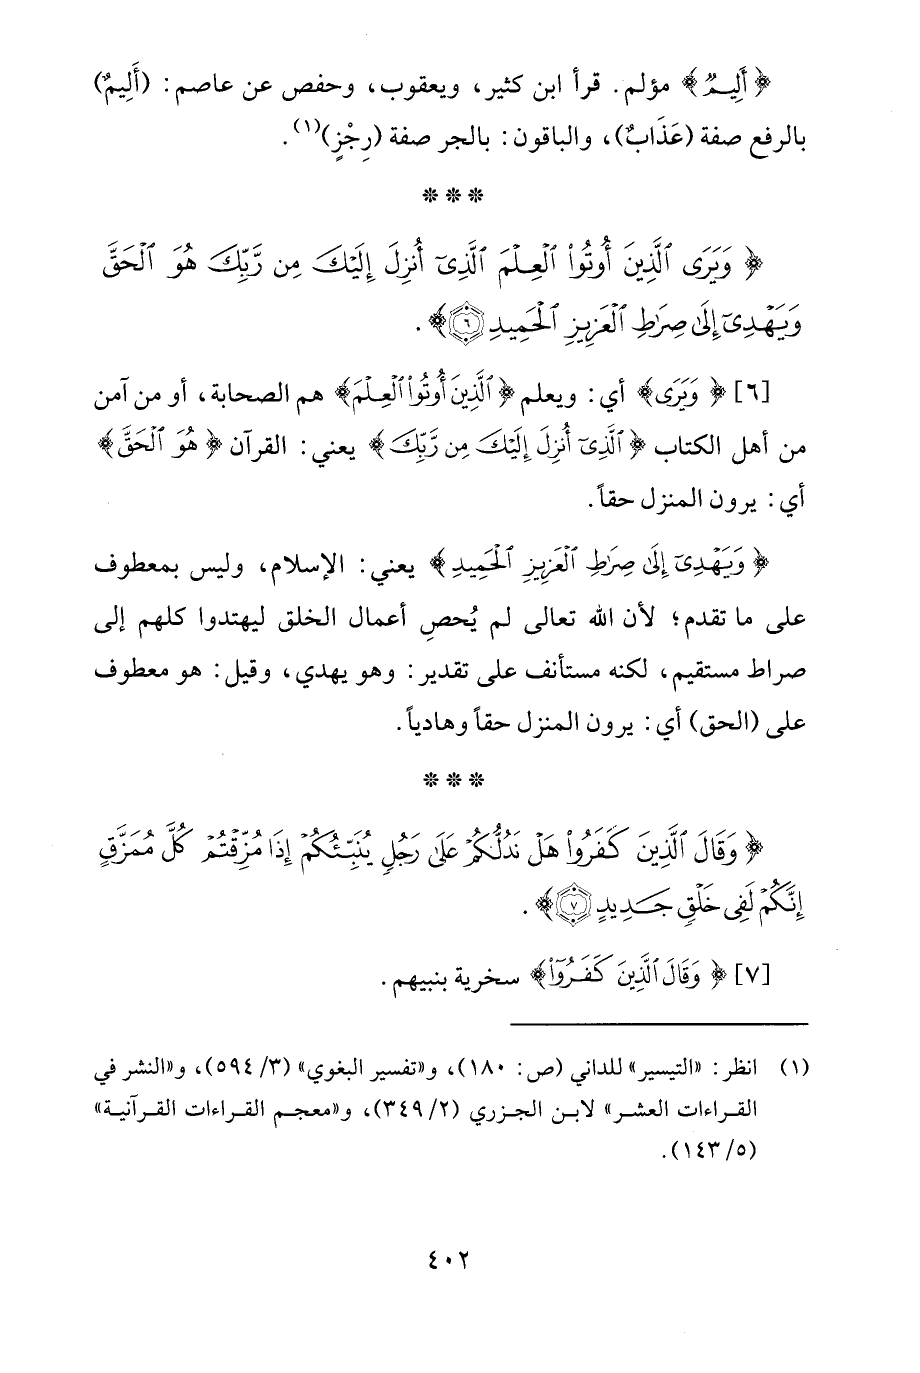 ﴿أَلِيمٌ﴾ مؤلم. قرأ ابن كثير، ويعقوب، وحفص عن عاصم: (أَلِيمٌ)
بالرفع صفة (عَذَابٌ)، والباقون: بالجر صفة (رِجْزٍ)(١).
***
﴿وَيَرَى ٱلَّذِينَ أُوتُوا۟ ٱلْعِلْمَ ٱلَّذِىٓ أُنزِلَ إِلَيْكَ مِن رَّبِّكَ هُوَ ٱلْحَقَّ
وَيَهْدِىٓ إِلَىٰ صِرَٰطِ ٱلْعَزِيزِ ٱلْحَمِيدِ ٦﴾.
[٦] ﴿وَيَرَى﴾ أي: ويعلم ﴿ٱلَّذِينَ أُوتُوا۟ ٱلْعِلْمَ﴾ هم الصحابة، أو من آمن
من أهل الكتاب ﴿ٱلَّذِىٓ أُنزِلَ إِلَيْكَ مِن رَّبِّكَ﴾ يعني: القرآن ﴿هُوَ ٱلْحَقَّ﴾
أي: يرون المنزل حقاً.
﴿وَيَهْدِىٓ إِلَىٰ صِرَٰطِ ٱلْعَزِيزِ ٱلْحَمِيدِ﴾ يعني: الإسلام، وليس بمعطوف
على ما تقدم؛ لأن الله تعالى لم يُحصِ أعمال الخلق ليهتدوا كلهم إلى
صراط مستقيم، لكنه مستأنف على تقدير: وهو يهدي، وقيل: هو معطوف
على (الحق) أي: يرون المنزل حقاً وهادياً.
***
﴿وَقَالَ ٱلَّذِينَ كَفَرُوا۟ هَلْ نَدُلُّكُمْ عَلَىٰ رَجُلٍ يُنَبِّئُكُمْ إِذَا مُزِّقْتُمْ كُلَّ مُمَزَّقٍ
إِنَّكُمْ لَفِى خَلْقٍ جَدِيدٍ ٧﴾.
[٧] ﴿وَقَالَ ٱلَّذِينَ كَفَرُوٓا۟﴾ سخرية بنبيهم.
(١) انظر: «التيسير» للداني (ص: ١٨٠)، و«تفسير البغوي» (٣/ ٥٩٤)، و«النشر في
القراءات العشر» لابن الجزري (٢/ ٣٤٩)، و«معجم القراءات القرآنية»
(٥/ ١٤٣).
٤٠٢